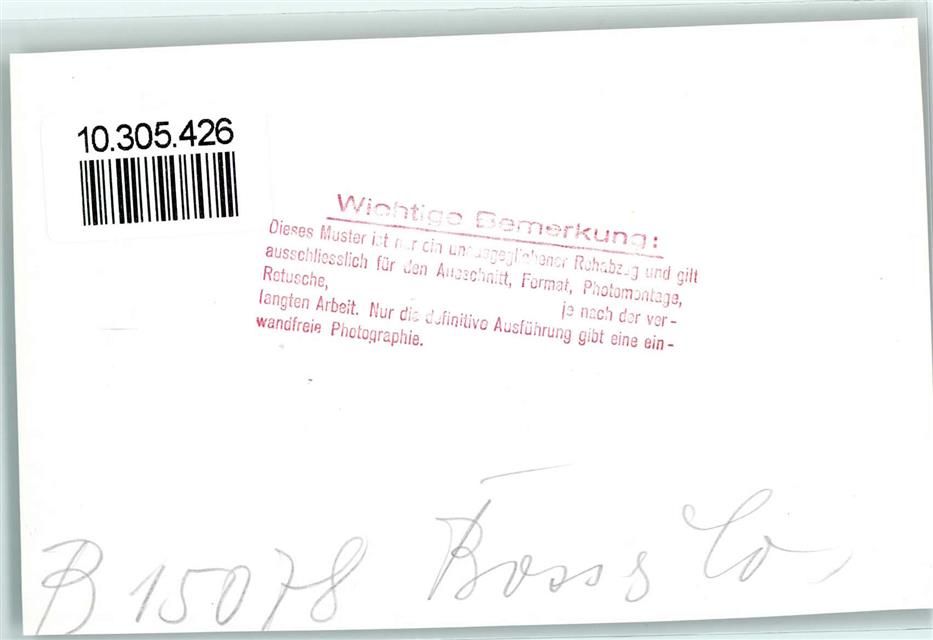 10.305.426
Wichtige Bemerkung:
Dieses Muster ist nur ein unausgeglichener Rohabzug und gilt
ausschliesslich für den Ausschnitt, Format, Photomontage,
Retusche, je nach der ver-
langten Arbeit. Nur die definitive Ausführung gibt eine ein-
wandfreie Photographie.
B 15078 Co